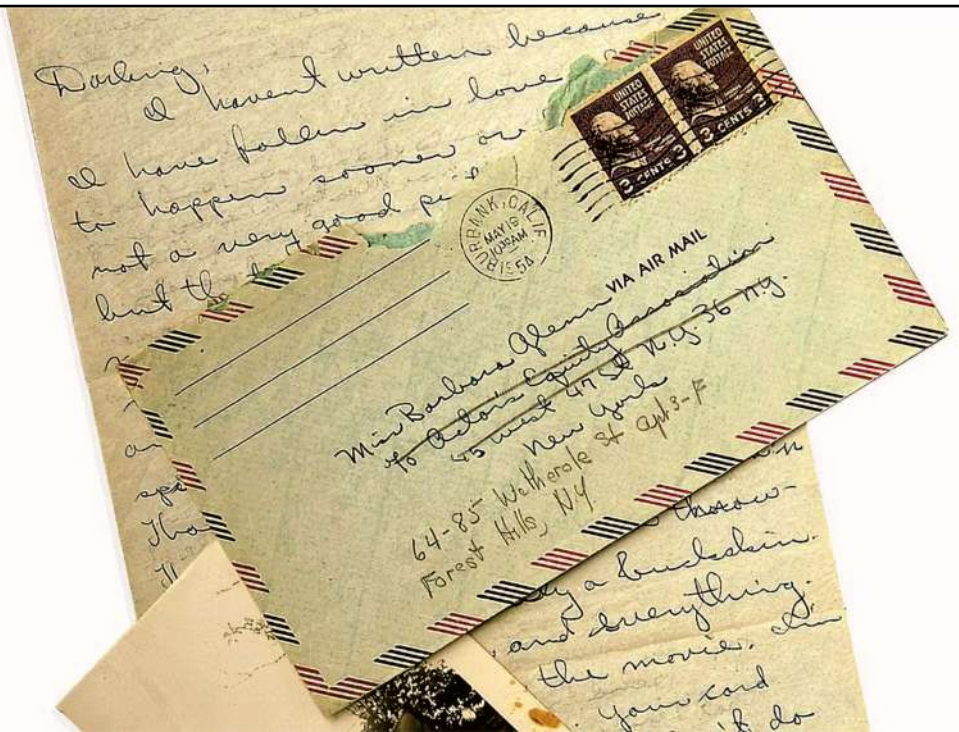 Darling,
I havent written because
I have fallen in love
to happen sooner or
not a very good pe
but th
an
spe
Tha
UNITED
STATES
POSTAGE
3 CENTS 3
UNITED
STATES
POSTAGE
3 CENTS 3
BURBANK, CALIF.
MAY 19
1954
VIA AIR MAIL
Miss Barbara Glenn
c/o Actors Equity Association
45 West 47 St N.Y. 36 N.Y.
New York
64-85 Wetherole St Apt 3-F
Forest Hills, NY
a buckskin.
and everything.
the movie.
your card
do